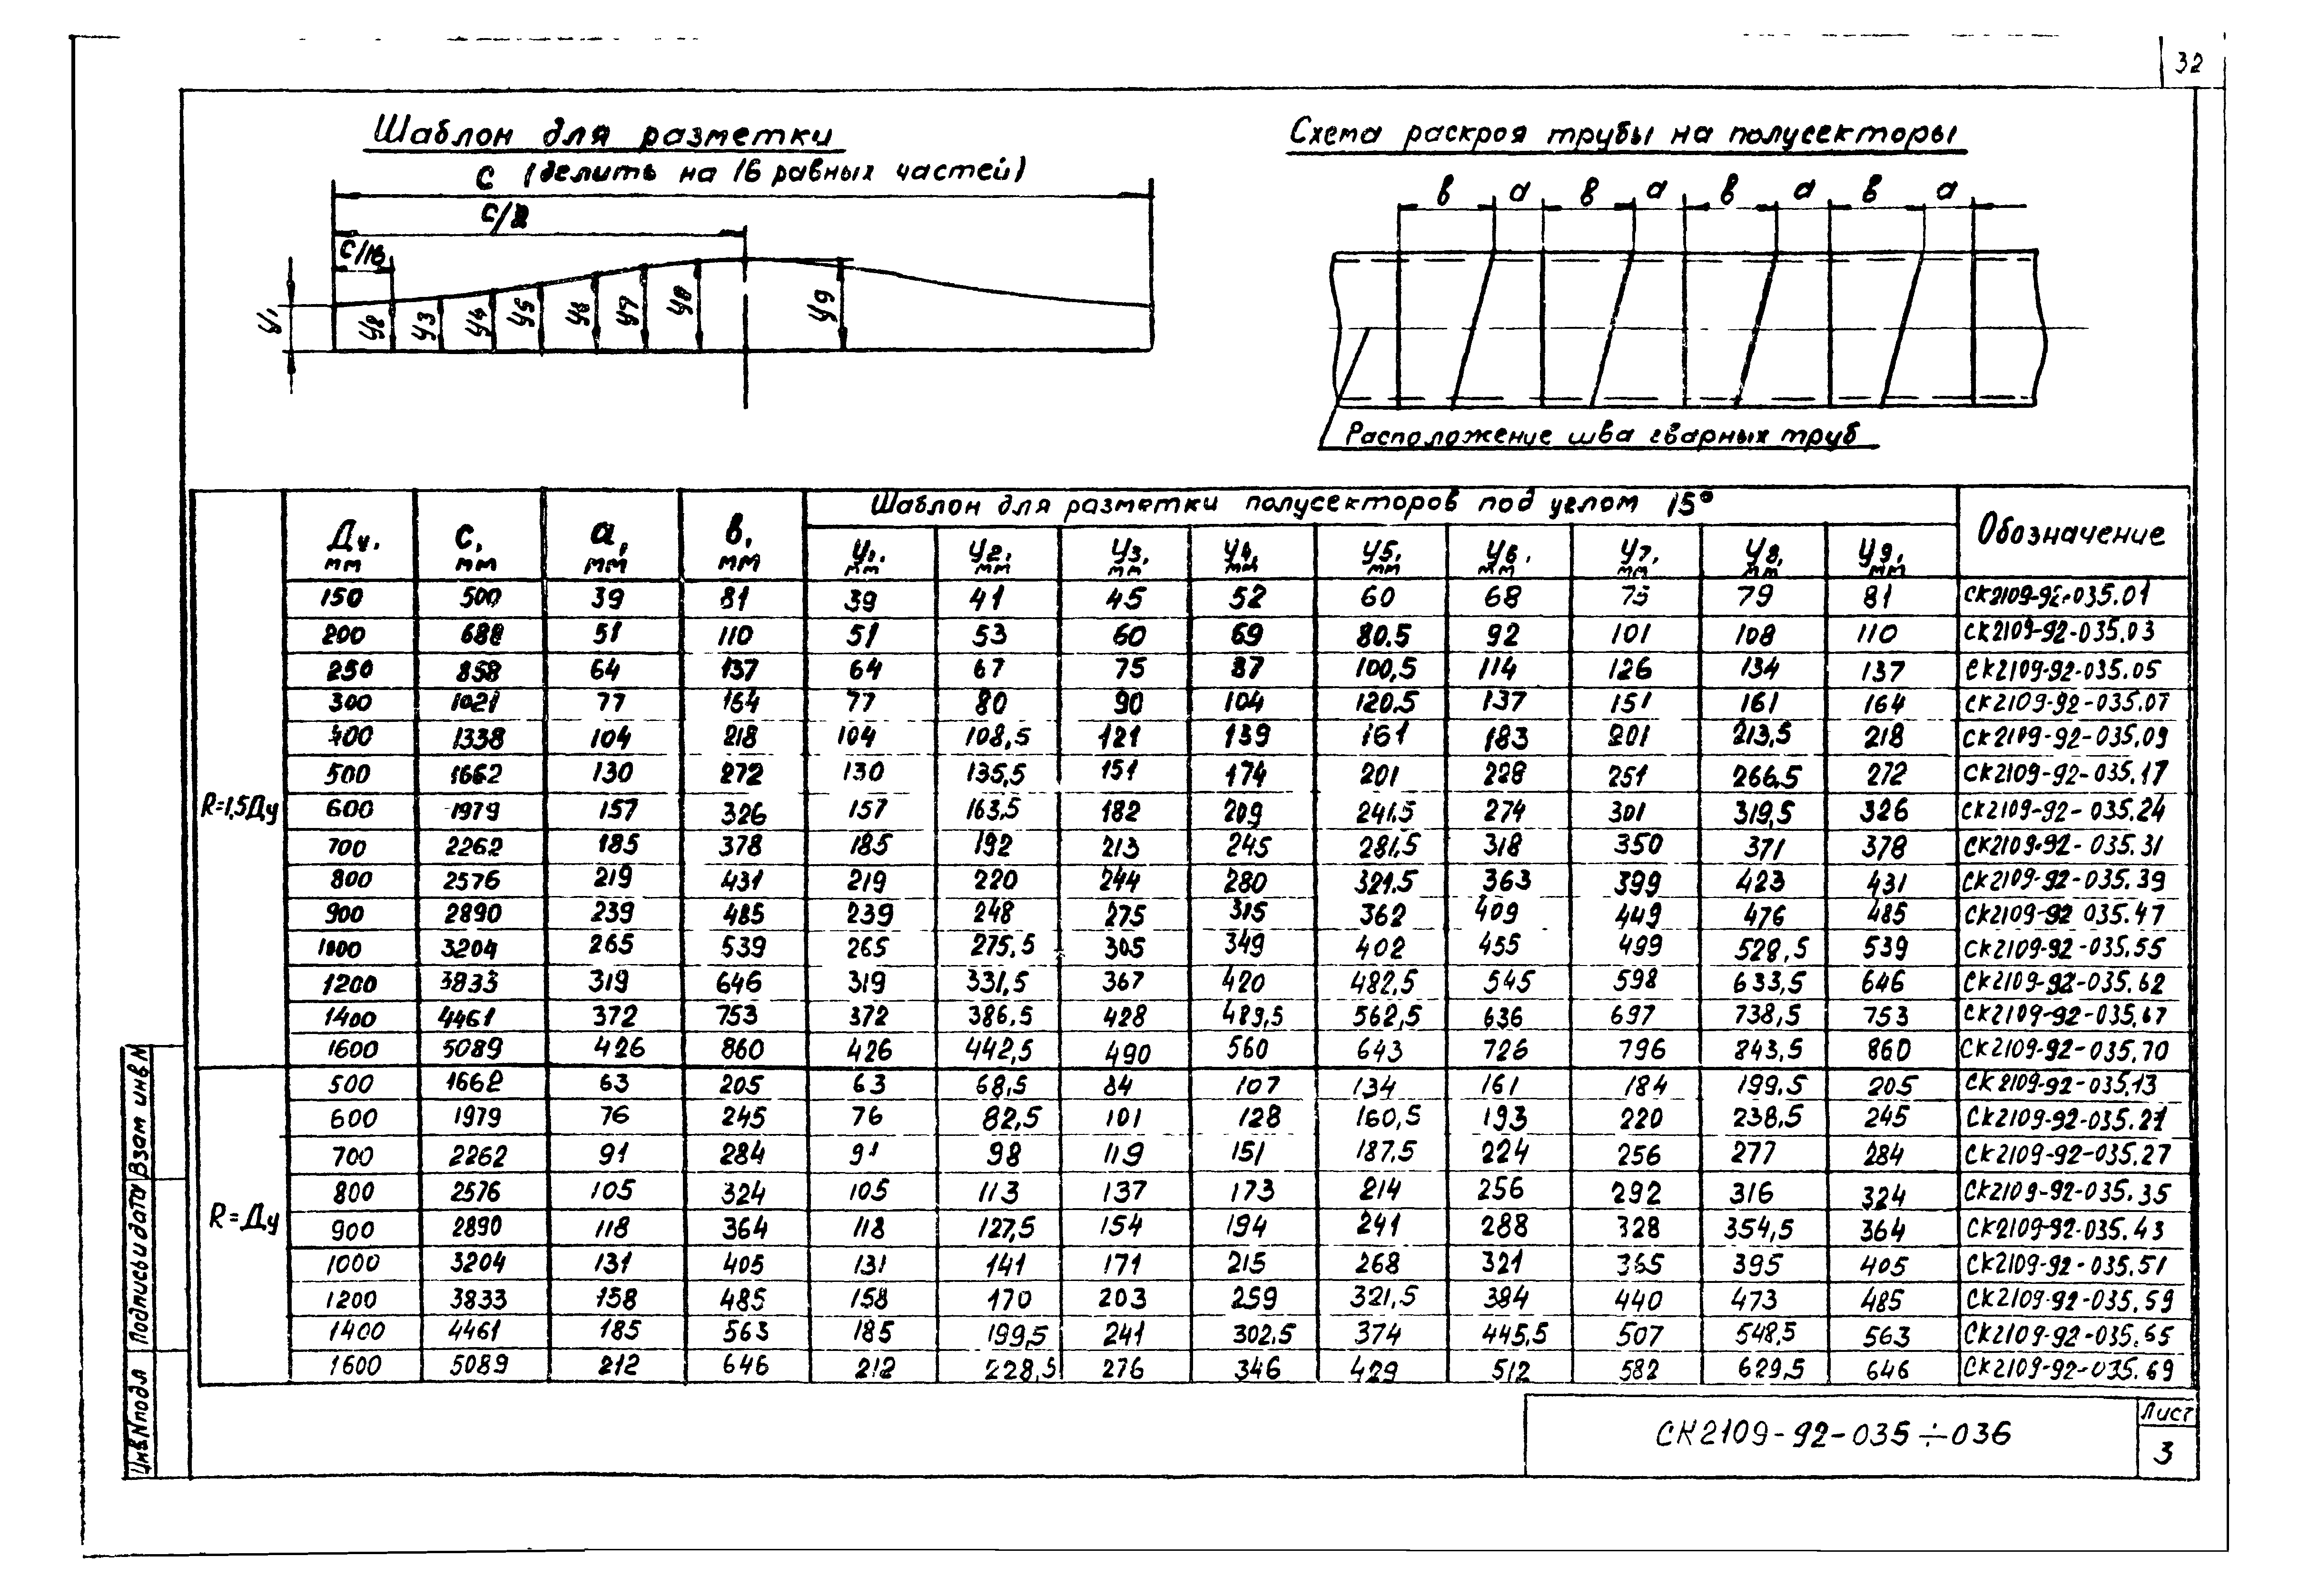 32
Шаблон для разметки
С (делить на 16 равных частей)
С/2
С/16
У1 У2 У3 У4 У5 У6 У7 У8 У9
Схема раскроя трубы на полусекторы
в а в а в а в а
Расположение шва сварных труб
Ду, мм С, мм а, мм в, мм Шаблон для разметки полусекторов под углом 15° Обозначение
У1, мм У2, мм У3, мм У4, мм У5, мм У6, мм У7, мм У8, мм У9, мм
R=1,5Ду
150 500 39 81 39 41 45 52 60 68 75 79 81 СК2109-92-035.01
200 688 51 110 51 53 60 69 80.5 92 101 108 110 СК2109-92-035.03
250 858 64 137 64 67 75 87 100,5 114 126 134 137 СК2109-92-035.05
300 1021 77 164 77 80 90 104 120.5 137 151 161 164 СК2109-92-035.07
400 1338 104 218 104 108,5 121 139 161 183 201 213,5 218 СК2109-92-035.09
500 1662 130 272 130 135,5 151 174 201 228 251 266,5 272 СК2109-92-035.17
600 1979 157 326 157 163,5 182 209 241.5 274 301 319,5 326 СК2109-92-035.24
700 2262 185 378 185 192 213 245 281.5 318 350 371 378 СК2109-92-035.31
800 2576 219 431 219 220 244 280 321.5 363 399 423 431 СК2109-92-035.39
900 2890 239 485 239 248 275 315 362 409 449 476 485 СК2109-92 035.47
1000 3204 265 539 265 275,5 305 349 402 455 499 528,5 539 СК2109-92-035.55
1200 3833 319 646 319 331,5 367 420 482,5 545 598 633,5 646 СК2109-92-035.62
1400 4461 372 753 372 386,5 428 489,5 562,5 636 697 738,5 753 СК2109-92-035.67
1600 5089 426 860 426 442,5 490 560 643 726 796 843,5 860 СК2109-92-035.70
R=Ду
500 1662 63 205 63 68,5 84 107 134 161 184 199.5 205 СК2109-92-035.13
600 1979 76 245 76 82,5 101 128 160,5 193 220 238,5 245 СК2109-92-035.21
700 2262 91 284 91 98 119 151 187.5 224 256 277 284 СК2109-92-035.27
800 2576 105 324 105 113 137 173 214 256 292 316 324 СК2109-92-035.35
900 2890 118 364 118 127,5 154 194 241 288 328 354,5 364 СК2109-92-035.43
1000 3204 131 405 131 141 171 215 268 321 365 395 405 СК2109-92-035.51
1200 3833 158 485 158 170 203 259 321,5 384 440 473 485 СК2109-92-035.59
1400 4461 185 563 185 199,5 241 302.5 374 445,5 507 548,5 563 СК2109-92-035.65
1600 5089 212 646 212 228,5 276 346 429 512 582 629,5 646 СК2109-92-035.69
Инв.N подл Подпись и дата Взам инв N
СК2109-92-035÷036
Лист
3